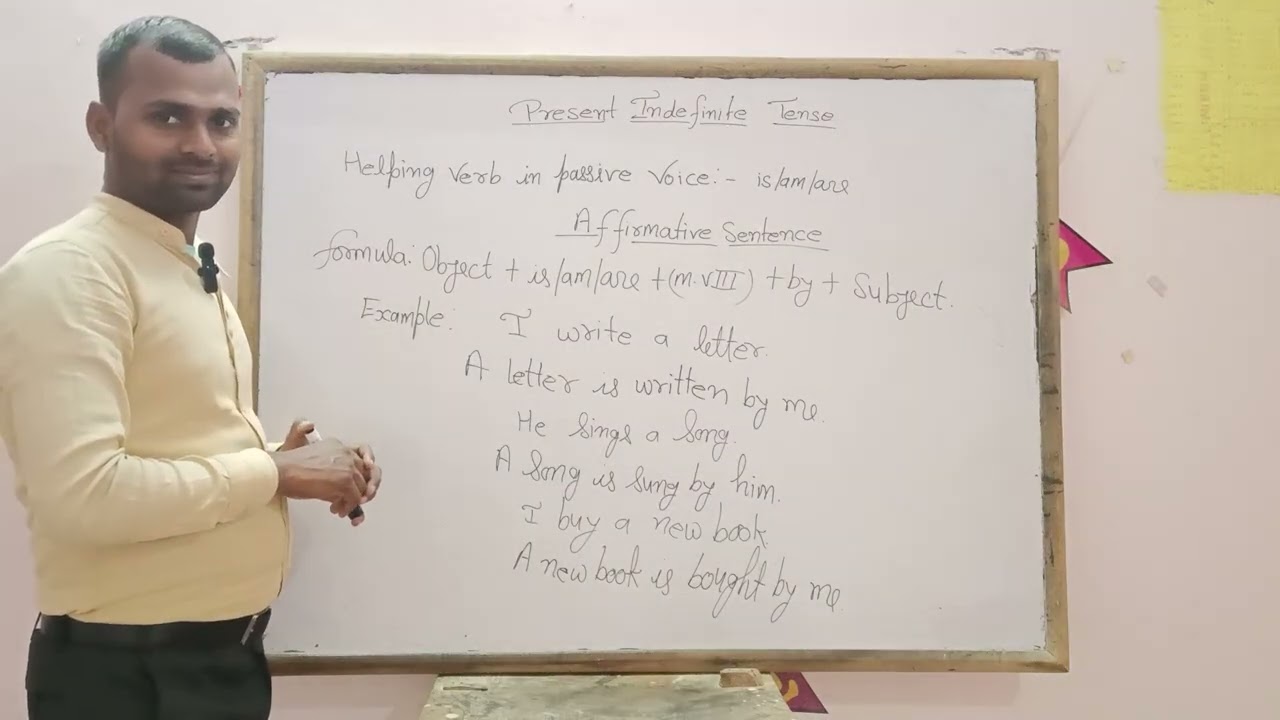 Present Indefinite Tense
Helping verb in passive voice:- is/am/are
Affirmative Sentence
formula: Object + is/am/are +(m.vIII) +by+ Subject.
Example: I write a letter.
A letter is written by me.
He sings a song.
A song is sung by him.
I buy a new book.
A new book is bought by me.